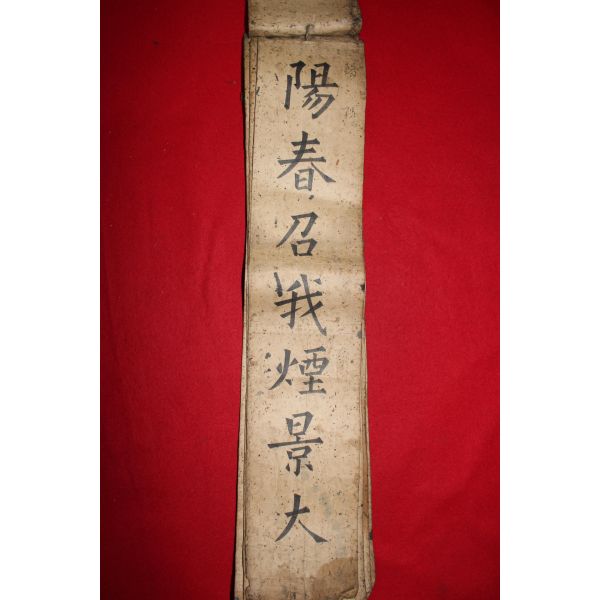 陽春召我煙景大